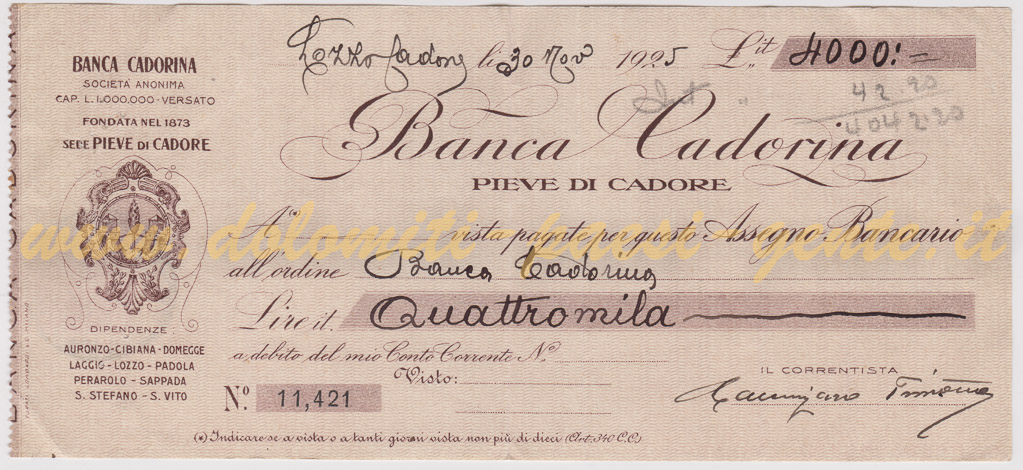 BANCA CADORINA
SOCIETÀ ANONIMA
CAP. L. 1.000.000 - VERSATO
FONDATA NEL 1873
SEDE PIEVE DI CADORE
DIPENDENZE:
AURONZO - CIBIANA - DOMEGGE
LAGGIO - LOZZO - PADOLA
PERAROLO - SAPPADA
S. STEFANO - S. VITO
Lozzo Cadore li 30 Nov 1925 L. it 4000:=
42.20
4042.20
Banca Cadorina
PIEVE DI CADORE
A(*) vista pagate per questo Assegno Bancario
all'ordine Banca Cadorina
Lire it. Quattromila
a debito del mio Conto Corrente N.o
Visto:
IL CORRENTISTA
N.o 11,421
(*) Indicare se a vista o a tanti giorni vista non più di dieci (Art. 340 C.C.)
www.dolomiti